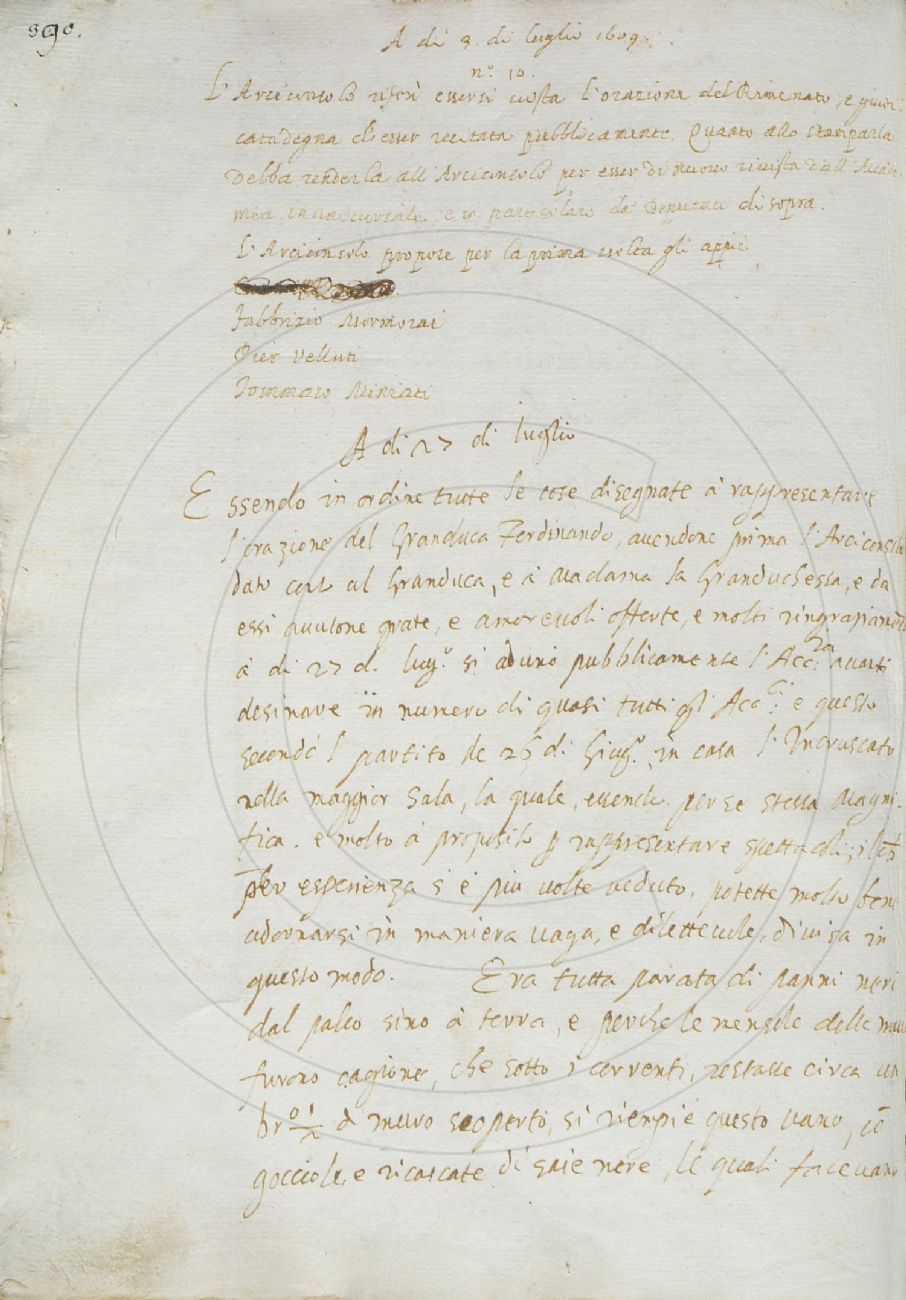 390.
A di 3. di luglio 1609.
n.º 10.
L'Arciconsolo riferì essersi vista l'orazione del Rimenato, e giudi-
cata degna di esser recitata pubblicamente. Quanto allo stamparla
debba renderla all'Arciconsolo per esser di nuovo rivista dall'Accade
mia in universale, e in particolare da Deputati di sopra.
L'Arciconsolo propose per la prima volta gli appiè
Fabbrizio Mormorai
Pier Velluti
Tommaso Miniati
A di 27 di luglio
Essendo in ordine tutte le cose disegnate à rappresentare
l'orazione del Granduca Ferdinando, avendone prima l'Arciconsolo
dato al Granduca, e à Madama la Granduchessa, e da
essi avutone grate, e amorevoli offerte, e molti ringraziamẽti
à di 27 d. lugº si adunò pubblicamente l'Acc.ia avanti
desinare in numero di quasi tutti gli Acc.ci e questo
secondo l partito de 26 di Giugº. in casa l'Incruscato
nella maggior sala, la quale, essendo per se stessa magni-
fica. e molto à proposito p rappresentare spettacoli,
per esperienza s'è più volte veduto, potette molto bene
adornarsi in maniera vaga, e dilettevole, divisa in
questo modo. Era tutta parata di panni neri
dal palco sino à terra, e perche le mensole delle
furono cagione, che sotto i correnti, restasse circa un
br.º 1/2 di muro scoperto, si riempiè questo vano, cõ
gocciole, e ricascate di saie nere, le quali facevano